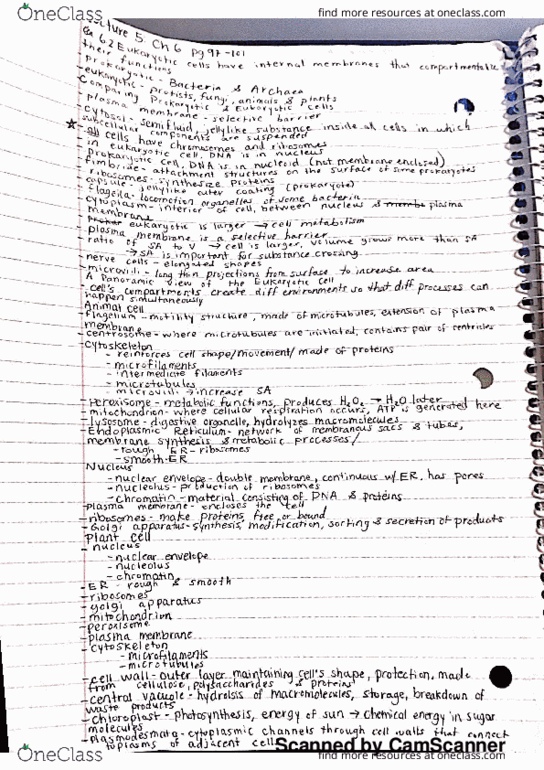 OneClass
find more resources at oneclass.com
Lecture 5: Ch 6 pg 97-101
6.2 Eukaryotic cells have internal membranes that compartmentalize
their functions
prokaryotic - Bacteria & Archaea
-eukaryotic - protists, fungi, animals & plants
Comparing Prokaryotic & Eukaryotic Cells
-plasma membrane - selective barrier
-cytosol - semifluid, jellylike substance inside all cells in which
subcellular components are suspended
-all cells have chromosomes and ribosomes
-in eukaryotic cell, DNA is in nucleus
-prokaryotic cell, DNA is in nucleoid (not membrane enclosed)
-fimbriae - attachment structures on the surface of some prokaryotes
-ribosomes - synthesize proteins
-capsule - jellylike outer coating (prokaryote)
-flagella - locomotion organelles of some bacteria
-cytoplasm - interior of cell, between nucleus & plasma
membrane
eukaryotic is larger → cell metabolism
-plasma membrane is a selective barrier
-ratio of SA to V → cell is larger, volume grows more than SA
→ SA is important for substance crossing
-nerve cells - elongated shapes
-microvilli - long thin projections from surface to increase area
A Panoramic View of the Eukaryotic Cell
-cell's compartments create diff environments so that diff processes can
happen simultaneously
Animal Cell
-flagellum - motility structure, made of microtubules, extension of plasma
membrane
-centrosome - where microtubules are initiated, contains pair of centrioles
-cytoskeleton
-reinforces cell shape/movement/made of proteins
-microfilaments
-intermediate filaments
-microtubules
-microvilli → increase SA
-Peroxisome - metabolic functions, produces H₂O₂ → H₂O later
-mitochondrion - where cellular respiration occurs, ATP is generated here
-lysosome - digestive organelle, hydrolyzes macromolecules
-Endoplasmic Reticulum - network of membranous sacs & tubes,
membrane synthesis & metabolic processes/
-rough ER - ribosomes
-smooth ER
Nucleus
-nuclear envelope - double membrane, continuous w/ ER, has pores
-nucleolus - production of ribosomes
-chromatin - material consisting of DNA & proteins
-plasma membrane - encloses the cell
-ribosomes - make proteins, free or bound
-Golgi apparatus - synthesis, modification, sorting & secretion of products
Plant cell
-nucleus
-nuclear envelope
-nucleolus
-chromatin
-ER - rough & smooth
-ribosomes
-golgi apparatus
-mitochondrion
-peroxisome
-plasma membrane
-cytoskeleton
-microfilaments
-microtubules
-cell wall - outer layer maintaining cell's shape, protection, made
from cellulose, polysaccharides & protein
-central vacuole - hydrolsis of macromolecules, storage, breakdown of
waste products
-chloroplast - photosynthesis, energy of sun → chemical energy in sugar
molecules
-plasmodesmata - cytoplasmic channels through cell walls that connect
of adjacent cells
Scanned by CamScanner
OneClass
find more resources at oneclass.com